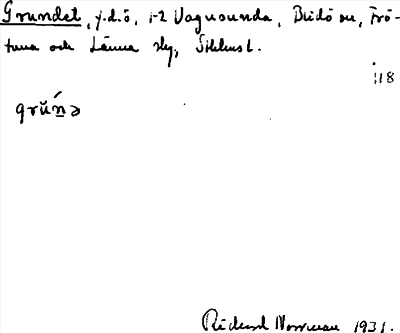 Grundet, y.d.ö, 1-2 Vagnsunda, Bidö sn, Frö-
tuna och Länna slg, Sthlms l.
118
grŭńə
Rickard Norrman 1931.